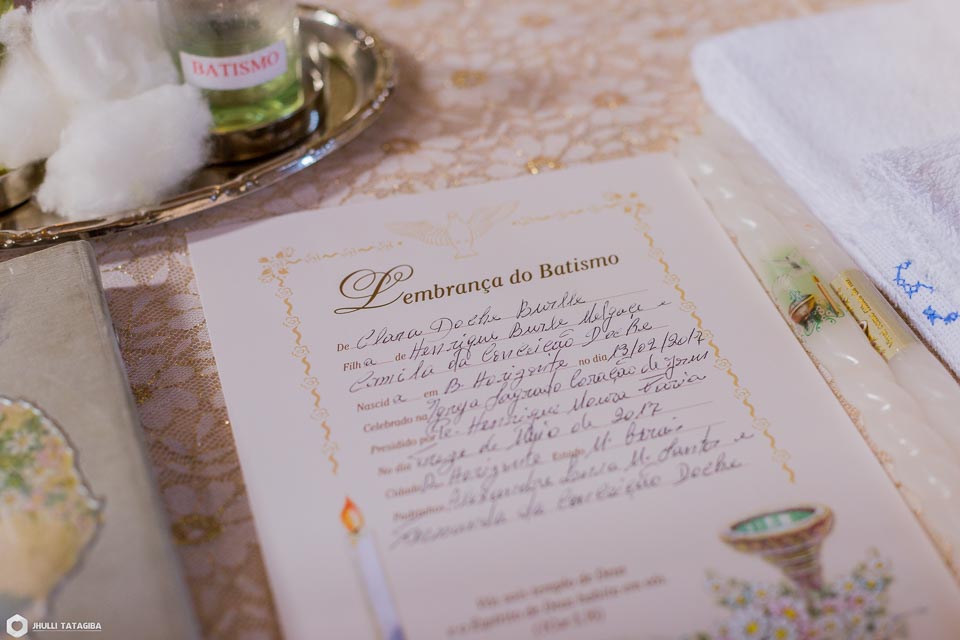 BATISMO
Lembrança do Batismo
De Clara Doche Burlle
Filha de Henrique Burle Melgaço e
Camila da Conceição Doche
Nascida em B. Horizonte no dia 13/02/2017
Celebrado na Igreja Sagrado Coração de Jesus
Presidido por Pe. Henrique Moura Faria
No dia treze de Maio de 2017
Cidade B. Horizonte Estado M. Gerais
Padrinhos Alexandre M. Santos e
da Conceição Doche
Vós sois templo de Deus
e o Espírito de Deus habita em vós
JHULLI TATAGIBA